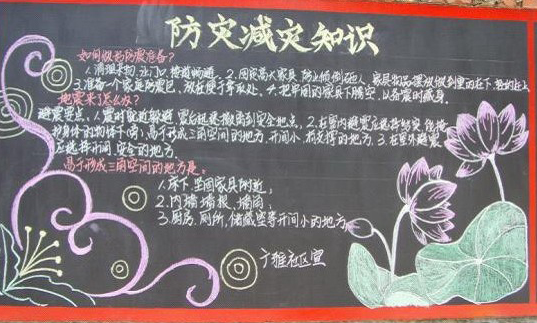 防灾减灾知识
如何做好防震准备?
1.清理杂物,让门口、楼道畅通。2.固定高大家具,防止倾倒砸人,家具物品摆放做到重的在下,轻的在上
3.准备一个家庭防震包,放在便于拿取处。4.把牢固的家具下腾空,以备震时藏身。
地震来了怎么办?
避震要点:1.震时就近躲避,震后迅速撤离到安全地点。2.在室内避震应选择结实、能掩
护身体的物体下(旁),易于形成三角空间的地方,开间小、有支撑的地方。3.在室外避震
应选择开阔、安全的地方
易于形成三角空间的地方是:
1.床下、坚固家具附近;
2.内墙墙根、墙角;
3.厨房、厕所、储藏室等开间小的地方
广雅社区宣